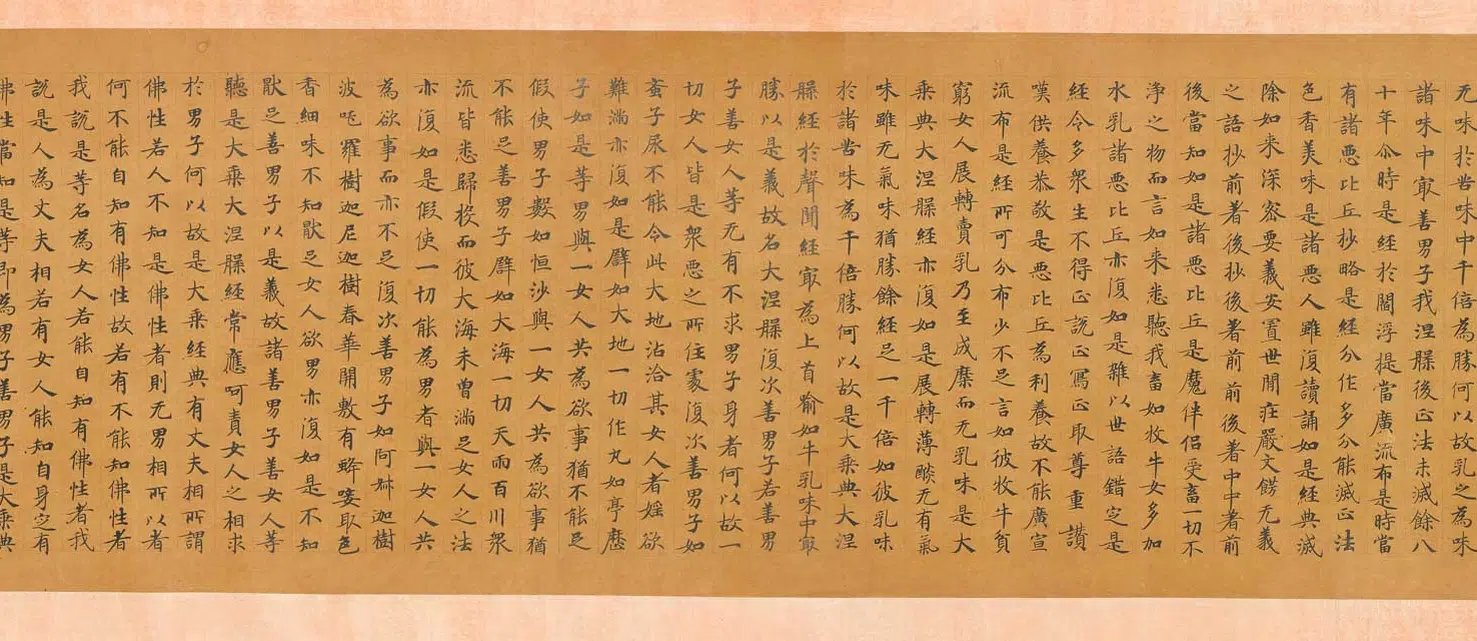 无味於苦味中千倍為勝何以故乳之為味
諸味中冣善男子我涅槃後正法未滅餘八
十年尒時是經於閻浮提當廣流布是時當
有諸惡比丘抄略是經分作多分能滅正法
色香美味是諸惡人雖復讀誦如是經典滅
除如来深密要義安置世間莊嚴文餝无義
之語抄前著後抄後著前前後著中中著前
後當知如是諸惡比丘是魔伴侶受畜一切不
淨之物而言如来悉聽我畜如牧牛女多加
水乳諸惡比丘亦復如是雜以世語錯定是
經令多衆生不得正說正寫正取尊重讚
嘆供養恭敬是惡比丘為利養故不能廣宣
流布是經所可分布少不足言如彼牧牛貧
窮女人展轉賣乳乃至成糜而无乳味是大
乗典大涅槃經亦復如是展轉薄酸无有氣
味雖无氣味猶勝餘經足一千倍如彼乳味
於諸苦味為千倍勝何以故是大乗典大涅
槃經於聲聞經冣為上首喻如牛乳味中冣
勝以是義故名大涅槃復次善男子若善男
子善女人等无有不求男子身者何以故一
切女人皆是衆惡之所住處復次善男子如
蚉子尿不能令此大地沾洽其女人者婬欲
難滿亦復如是譬如大地一切作丸如亭歷
子如是等男與一女人共為欲事猶不能足
假使男子數如恒沙與一女人共為欲事猶
不能足善男子譬如大海一切天雨百川衆
流皆悉歸投而彼大海未曾滿足女人之法
亦復如是假使一切能為男者與一女人共
為欲事而亦不足復次善男子如阿姝迦樹
波吒羅樹迦尼迦樹春華開敷有蜂唼取色
香細味不知猒足女人欲男亦復如是不知
猒足善男子以是義故諸善男子善女人等
聽是大乗大涅槃經常應呵責女人之相求
於男子何以故是大乗經典有丈夫相所謂
佛性若人不知是佛性者則无男相所以者
何不能自知有佛性故若有不能知佛性者
我說是等名為女人若能自知有佛性者我
說是人為丈夫相若有女人能知自身定有
佛性當知是等即為男子善男子是大乗典